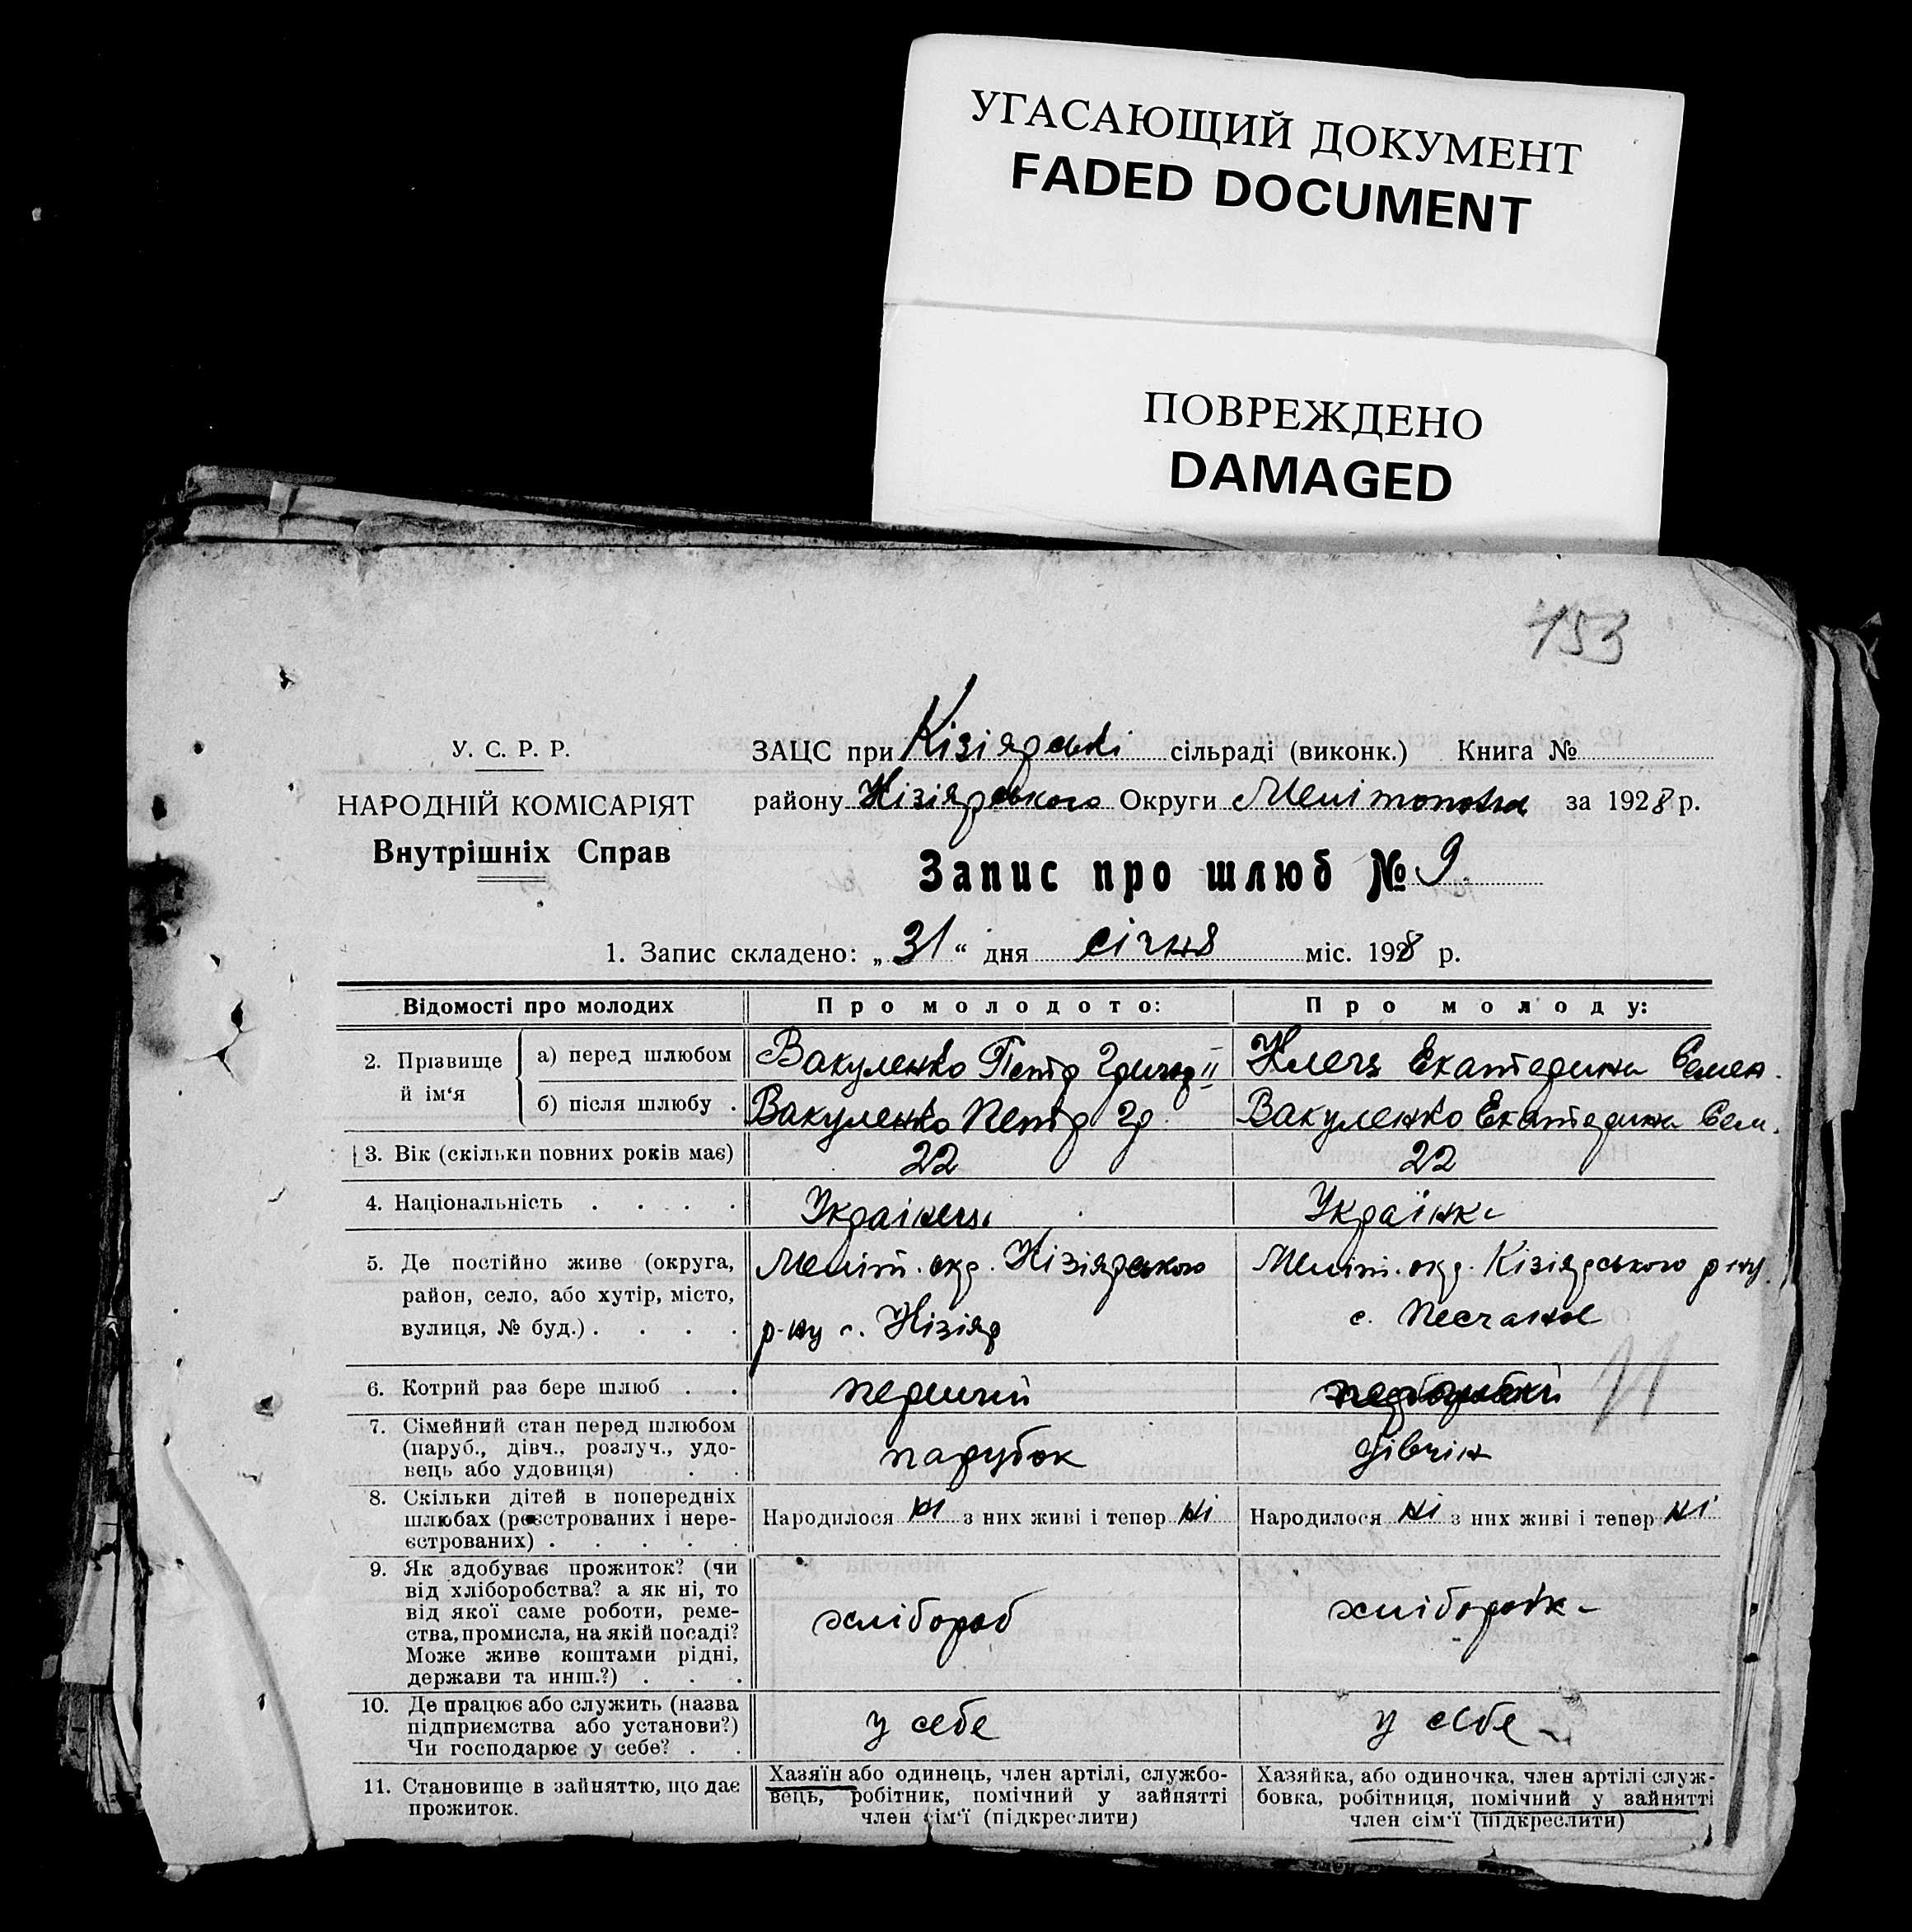 УГАСАЮЩИЙ ДОКУМЕНТ
FADED DOCUMENT
ПОВРЕЖДЕНО
DAMAGED
153
У. С. Р. Р.
НАРОДНІЙ КОМІСАРІЯТ
Внутрішніх Справ
ЗАЦС при Кізіярські сільраді (виконк.) Книга №
району Кізіярського Округи за 1928 р.
Запис про шлюб № 9
1. Запис складено: „31“ дня січня міс. 1928 р.
Відомості про молодих
Про молодого:
Про молоду:
2. Прізвище й ім‘я
а) перед шлюбом
Вакуленко Петр Григор
Клечь Екатерина Семен.
б) після шлюбу .
Вакуленко Петр Гр.
Вакуленко Екатерина Сем.
3. Вік (скільки повних років має)
22
22
4. Національність . . . .
Українець
Українка
5. Де постійно живе (округа,
район, село, або хутір, місто,
вулиця, № буд.) . . . .
Меліт. окр. Кізіярського
р-ну с. Кізіяр
Меліт. окр. Кізіярського р-ну
с. Песчаное
6. Котрий раз бере шлюб . .
перший
7. Сімейний стан перед шлюбом
(паруб., дівч., розлуч., удо-
вець або удовиця) . .
парубок
дівчін
8. Скільки дітей в попередніх
шлюбах (реєстрованих і нере-
єстрованих) . . . . .
Народилося ні з них живі і тепер ні
Народилося ні з них живі і тепер ні
9. Як здобуває прожиток? (чи
від хліборобства? а як ні, то
від якої саме роботи, реме-
ства, промисла, на якій посаді?
Може живе коштами рідні,
держави та инш.?) . . .
хлібороб
хліборобка
10. Де працює або служить (назва
підприємства або установи?)
Чи господарює у себе? . .
у себе
у себе
11. Становище в зайняттю, що дає
прожиток.
Хазяїн або одинець, член артілі, службо-
вець, робітник, помічний у зайнятті
член сім‘ї (підкреслити)
Хазяйка, або одиночка, член артілі служ-
бовка, робітниця, помічний у зайнятті
член сім‘ї (підкреслити)